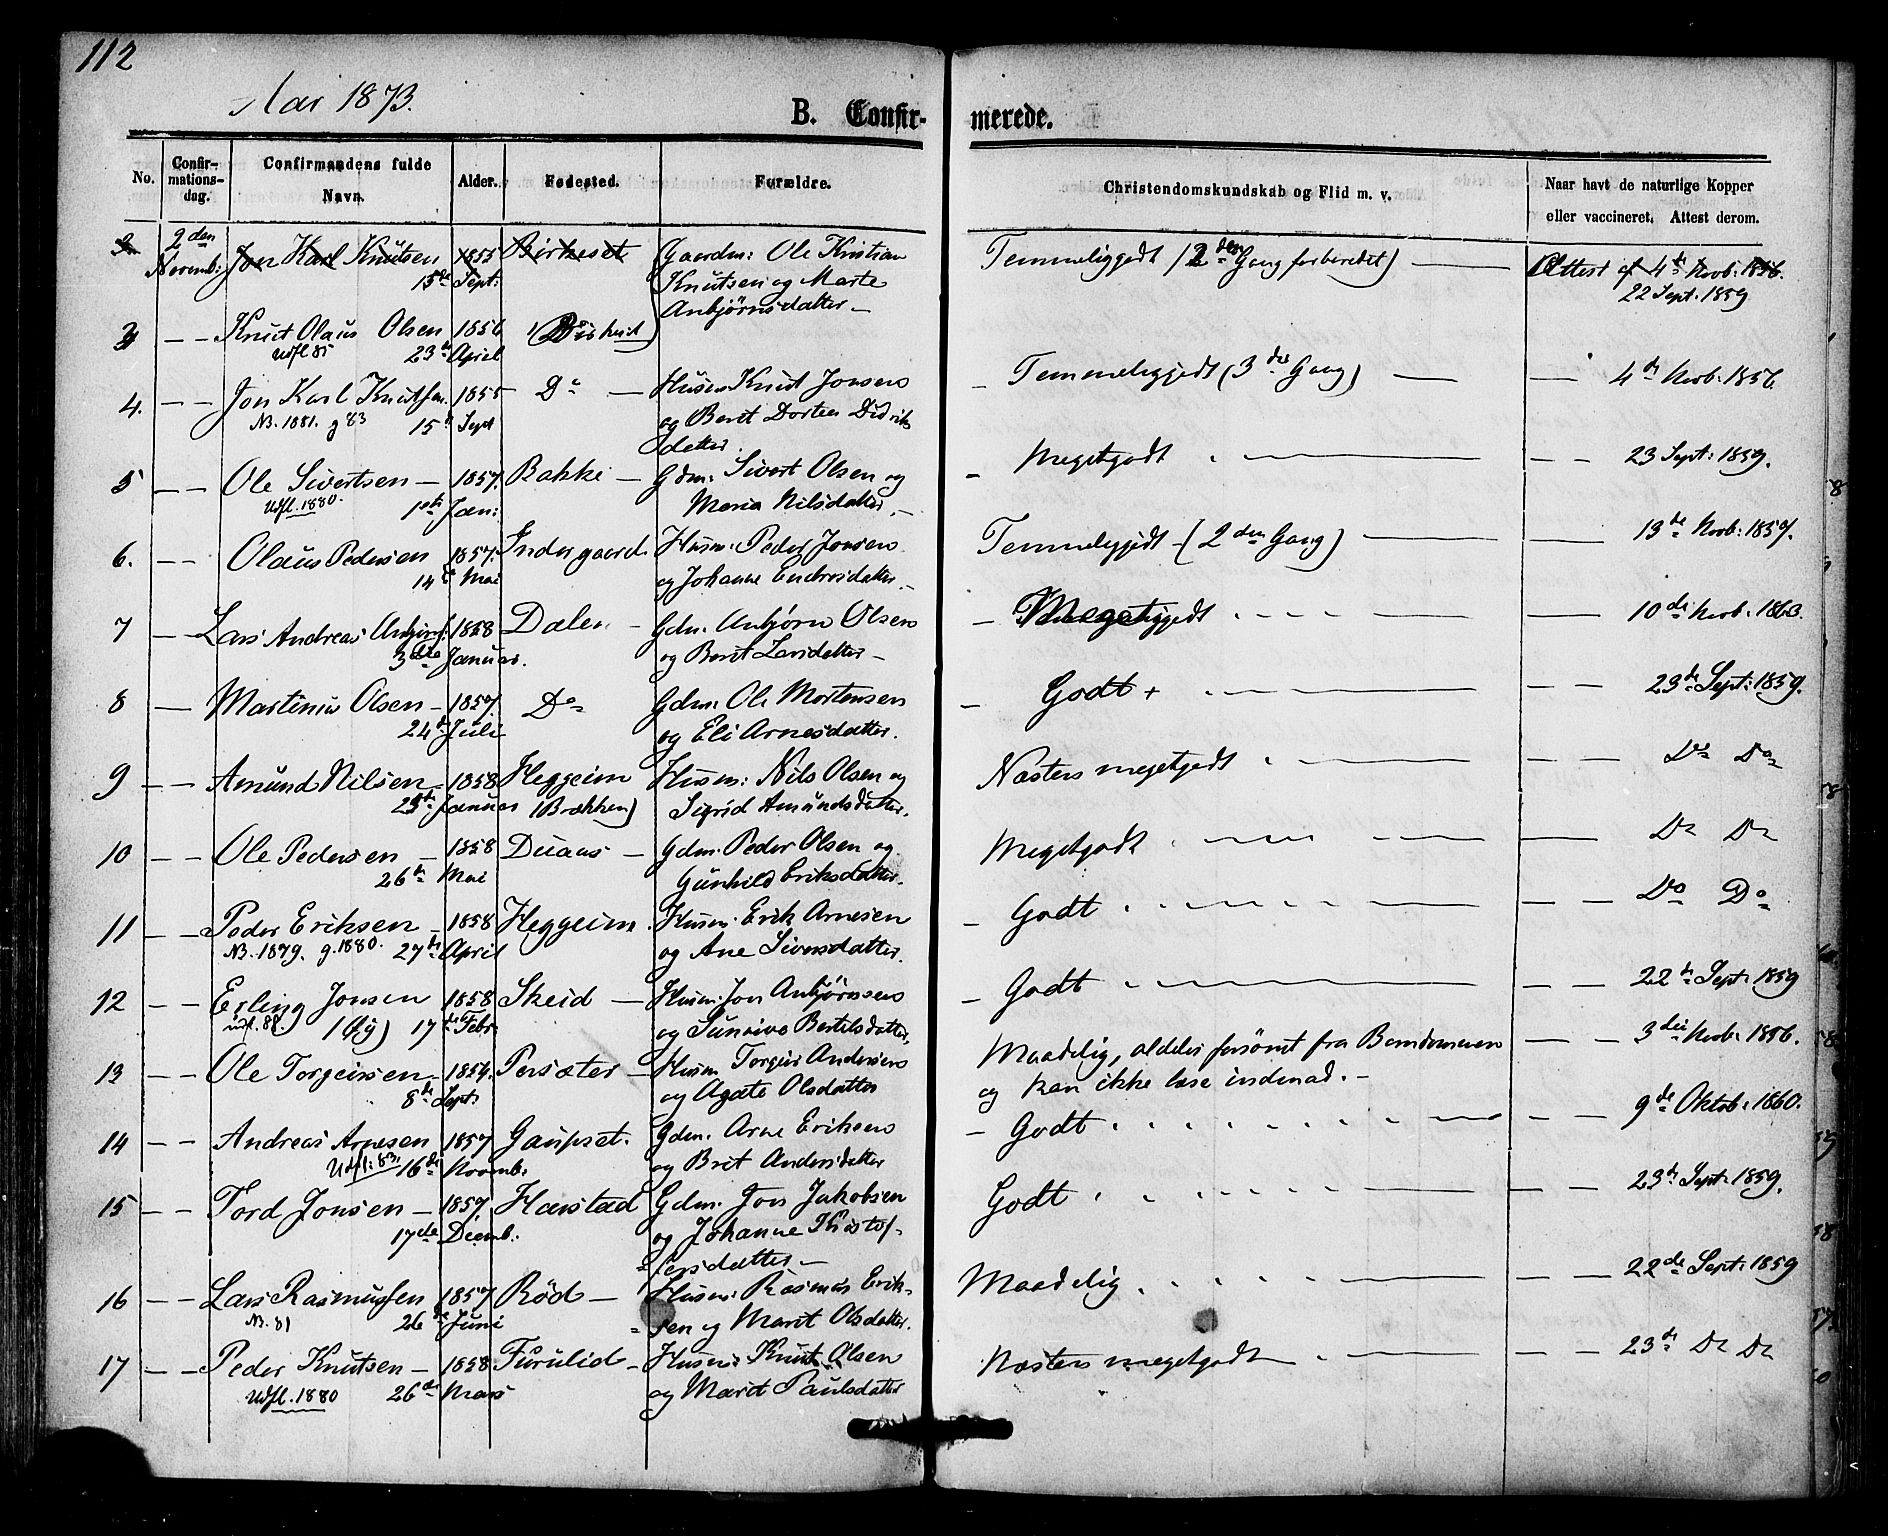 112
Aar 1873.
B. Confirmerede.
No. Confirmationsdag. Confirmandens fulde Navn. Alder. Fødested. Forældre. Christendomskundskab og Flid m. v. Naar havt de naturlige Kopper eller vaccineret. Attest derom.
2den Novemb: Jon Karl Knutsen 1855 Birkeset Gaardm: Ole Kristian Temmeliggodt (2den Gang forberedet) Attest af 4de Novb: 1856.
15de Sept: Knutsen og Marte 22 Sept. 1859
Anbjørnsdatter
3 Knut Olaus Olsen 1856
Udfl 85 23de April
4. Jon Karl Knutsen 1855 Do Husm Knud Jonsen Temmeliggodt (3de Gang) 4de Novb: 1856.
N3. 1881. g 83 15de Sept og Berit Dortea Didriks
datter.
5 Ole Sivertsen 1857. Bakke Gdm: Sivert Olsen og Megetgodt 23 Sept: 1859.
Udfl. 1880. 1ste Jan: Maria Nilsdatter
6. Olaus Pedersen 1857. Indergaard Husm: Peder Jonsen Temmeliggodt (2den Gang) 13de Novb: 1857.
14de Mai og Johanne Endresdatter
7 Lars Andreas Anbjørns: 1858 Dalen Gdm. Anbjørn Olsen 10de Novb: 1863.
3die Januar. og Berit Larsdatter
8 Martinus Olsen 1857 Do Gdm. Ole Mortensen Godt + 23de Sept: 1859.
24de Juli og Eli Arnesdatter.
9 Amund Nilsen 1858 Heggeim Husm: Nils Olsen og Næsten megetgodt Do Do
23de Januar (Brækken) Sigrid Amundsdatter.
10 Ole Pedersen 1858 Duaas Gdm. Peder Olsen og Megetgodt Do Do
26de Mai Gunhild Eriksdatter.
11 Peder Eriksen 1858 Heggeim. Husm. Erik Arnesen Godt Do Do
N3. 1879. g. 1880. 27de April og Ane Siversdatter.
12 Erling Jonsen 1858 Skeid Husm. Jon Anbjørnsen Godt 22de Sept: 1859
udf. 88. 17de Febr og Sunnive Bertelsdatter
13 Ole Torgeirsen 1854. Persæter Husm Torgeir Andersen Maadelig, aldeles forsømt fra Barndommen 3die Novb: 1856.
8de Sept: og Agate Olsdatter og kan ikke læse indenad.
14 Andreas Arnesen 1857 Gaupset. Gdm. Arne Eriksen Godt 9de Oktob: 1860.
Udfl: 83. 16de Novmb. og Brit Andersdatter
15 Tord Jonsen 1857 Harstad Gdm. Jon Jakobsen Godt 23de Sept: 1859.
17de Decmb: og Johanne Kristof-
fersdatter
16 Lars Rasmussen 1857 Rød Husm: Rasmus Erik- Maadelig. 22de Sept: 1859
N3. 81 26de Juni sen og Marit Olsdatter.
17 Peder Knutsen 1858 Furulid Husm: Knut Olsen Næsten megetgodt 23de Do Do
Udfl. 1880 26de Mars og Marit Paulsdatter